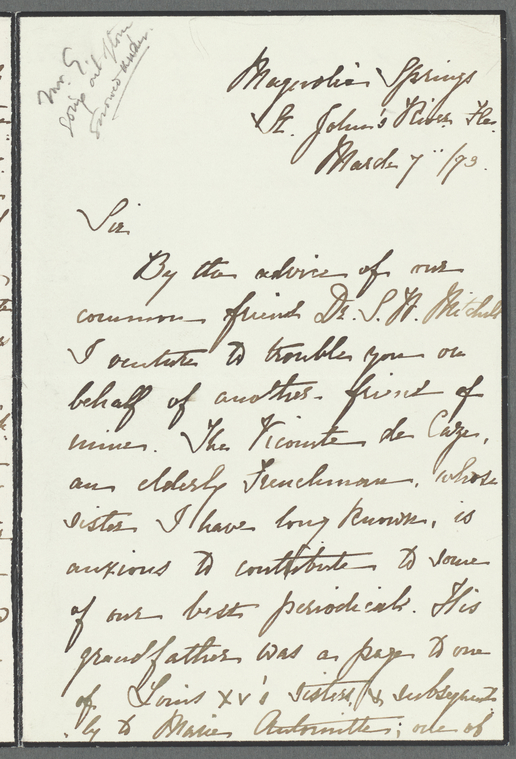 Mr. G.
going out from
Magnolia Springs
St. John's River Fla.
March 7" /93.
Sir
By the advice of our
common friend Dr. S. W. Mitchell
I venture to trouble you on
behalf of another friend of
mine. The Vicomte de Caze,
an elderly Frenchman, whose
sister I have long known, is
anxious to contribute to some
of our best periodicals. His
grandfather was a page to one
of Louis XV's sisters, & subsequent
ly to Marie Antoinette; one of